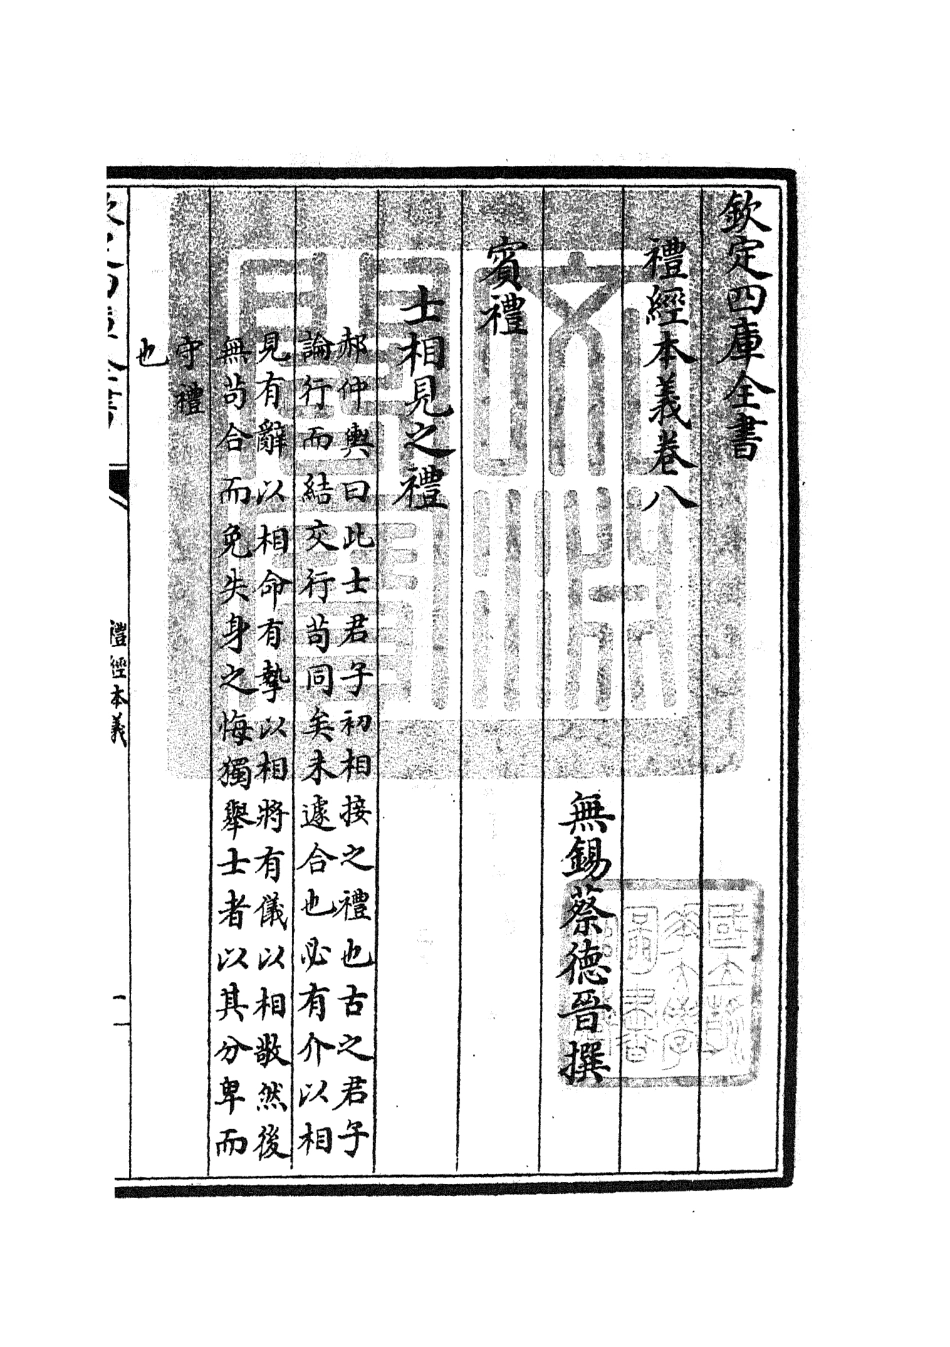 欽定四庫全書
禮經本義卷八
無錫蔡德晉撰
賓禮
士相見之禮
郝仲輿曰此士君子初相接之禮也古之君子
論行而結交行苟同矣未遽合也必有介以相
見有辭以相命有摯以相將有儀以相敬然後
無苟合而免失身之悔獨舉士者以其分卑而
守禮
也
禮經本義
一